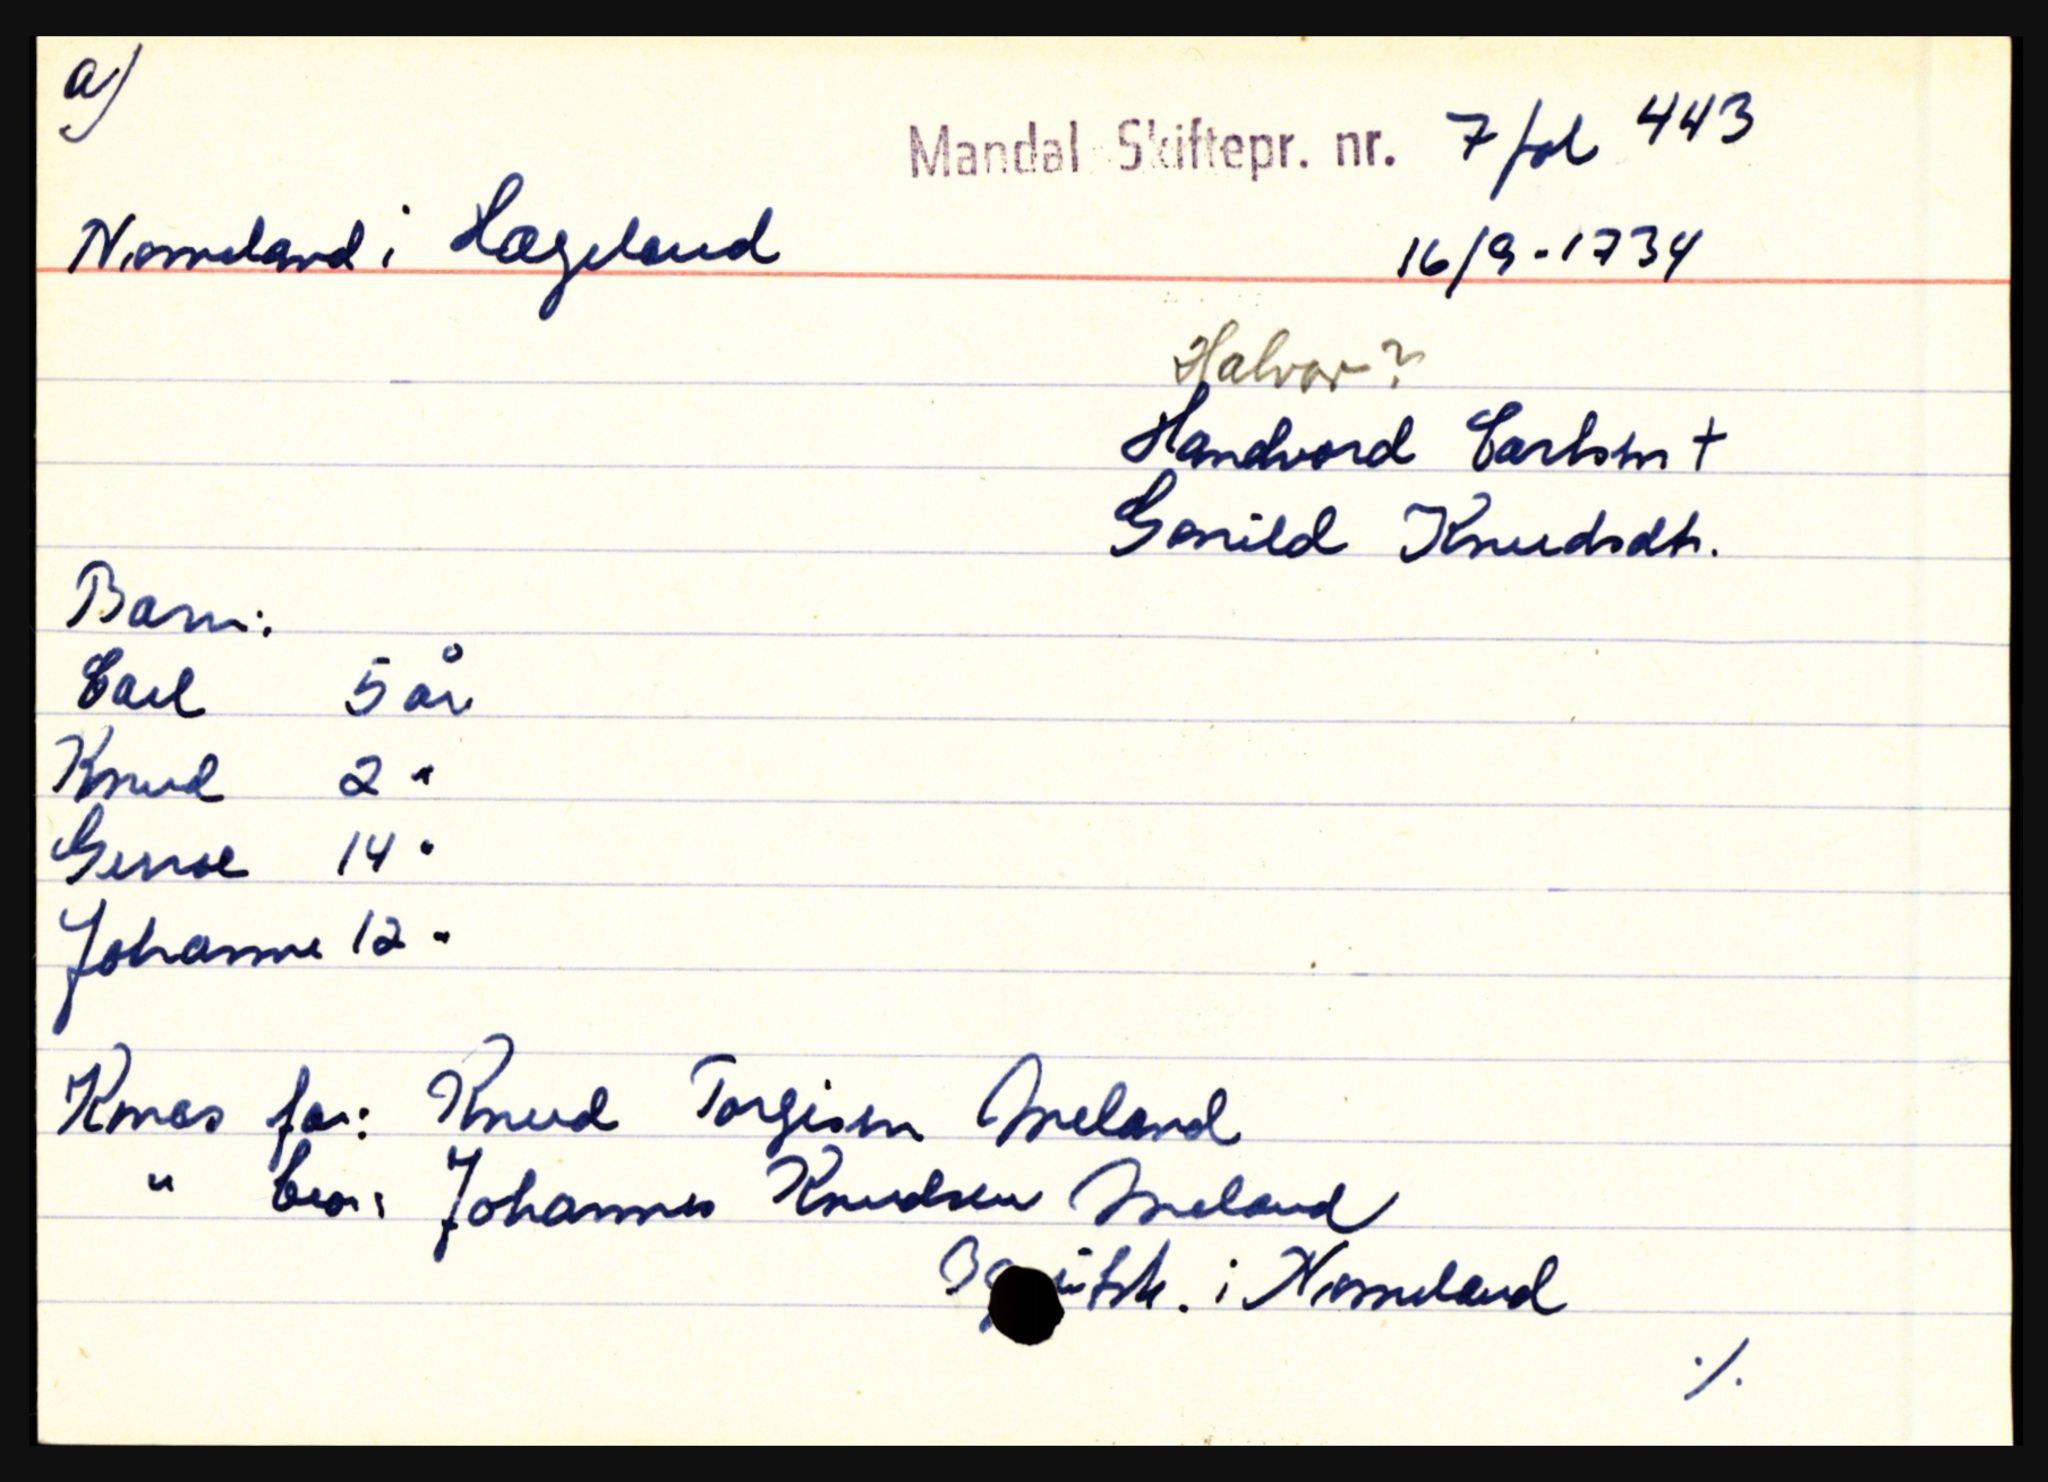 a)
Mandal Skiftepr. nr. 7 fol 443
Nomeland i Hægeland 16/9-1734
Halvor?
Handvord Carlsen +
Gonild Knudsdtr.
Barn:
Carl 5 år
Knud 2 "
Johanne 12 "
Knas far: Knud Torgisen Meland
" bror: Johannes Knudsen Meland
i Nomeland
./.